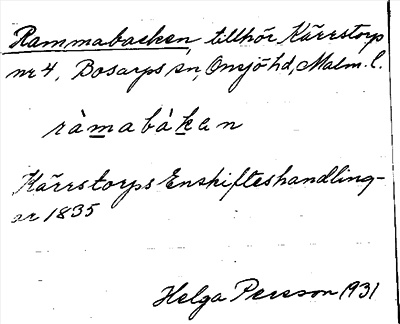 Rammabacken, tillhör Kärrstorp
nr 4, Bosarps sn, Onsjö hd, Malm. l.
ràmabàkan
Kärrstorps Enskifteshandling-
ar 1835
Helga Persson 1931